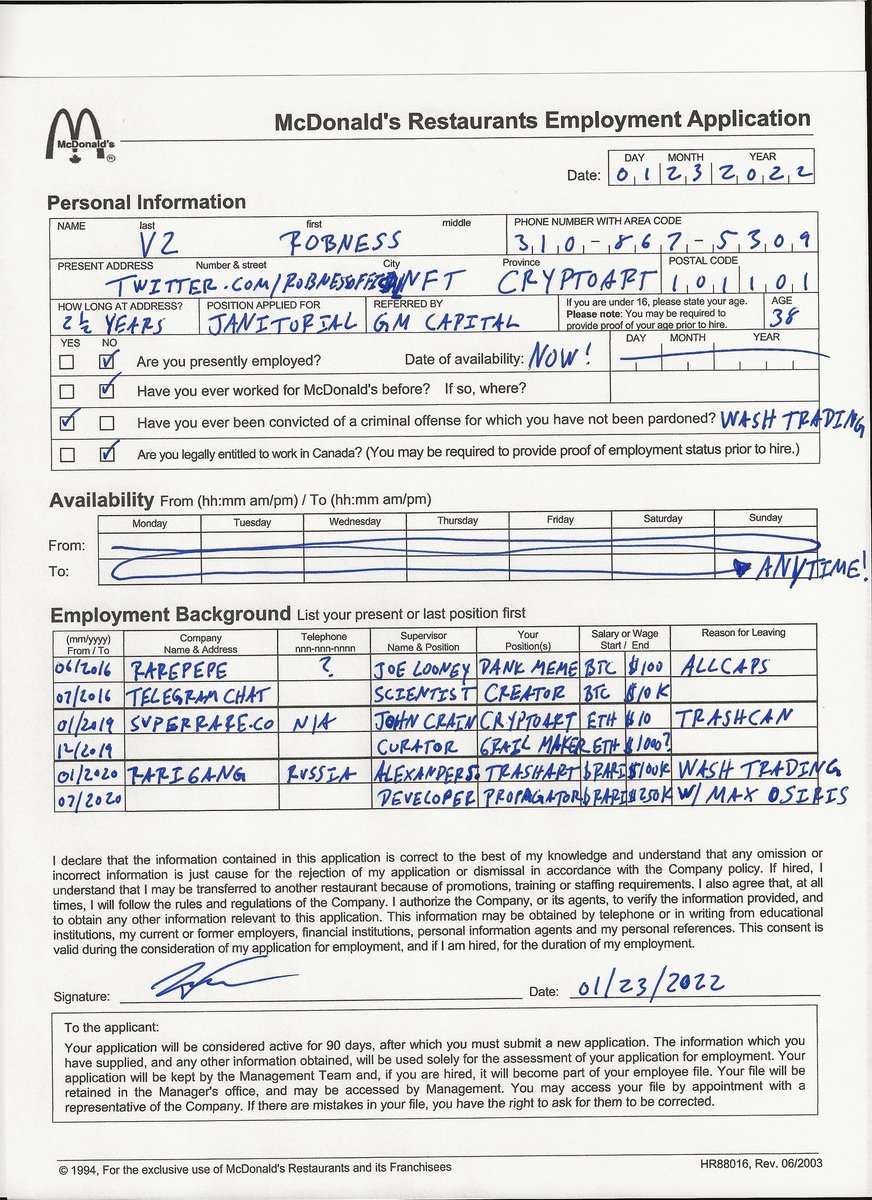 McDonald's
®
McDonald's Restaurants Employment Application
DAY MONTH YEAR
Date: 01 23 2022
Personal Information
NAME last first middle PHONE NUMBER WITH AREA CODE
V2 ROBNESS 310-867-5309
PRESENT ADDRESS Number & street City Province POSTAL CODE
NFT CRYPTOART 101101
HOW LONG AT ADDRESS? POSITION APPLIED FOR REFERRED BY If you are under 16, please state your age. AGE
2½ YEARS JANITORIAL GM CAPITAL Please note: You may be required to provide proof of your age prior to hire. 38
YES NO DAY MONTH YEAR
Are you presently employed? Date of availability: NOW!
Have you ever worked for McDonald's before? If so, where?
Have you ever been convicted of a criminal offense for which you have not been pardoned? WASH TRADING
Are you legally entitled to work in Canada? (You may be required to provide proof of employment status prior to hire.)
Availability From (hh:mm am/pm) / To (hh:mm am/pm)
Monday Tuesday Wednesday Thursday Friday Saturday Sunday
From:
To: ANYTIME!
Employment Background List your present or last position first
(mm/yyyy) Company Telephone Supervisor Your Salary or Wage Reason for Leaving
From / To Name & Address nnn-nnn-nnnn Name & Position Position(s) Start / End
06/2016 RAREPEPE ? JOE LOONEY DANK MEME BTC $100 ALLCAPS
07/2016 TELEGRAM CHAT SCIENTIST CREATOR BTC $10K
01/2019 SUPERRARE.CO N/A JOHN CRAIN CRYPTOART ETH $10 TRASHCAN
12/2019 CURATOR GRAIL MAKER ETH $1000?
01/2020 RARIGANG RUSSIA ALEXANDERS. TRASHART $RARI $100K WASH TRADING
07/2020 DEVELOPER PROPAGATOR $RARI $250K W/ MAX OSIRIS
I declare that the information contained in this application is correct to the best of my knowledge and understand that any omission or
incorrect information is just cause for the rejection of my application or dismissal in accordance with the Company policy. If hired, I
understand that I may be transferred to another restaurant because of promotions, training or staffing requirements. I also agree that, at all
times, I will follow the rules and regulations of the Company. I authorize the Company, or its agents, to verify the information provided, and
to obtain any other information relevant to this application. This information may be obtained by telephone or in writing from educational
institutions, my current or former employers, financial institutions, personal information agents and my personal references. This consent is
valid during the consideration of my application for employment, and if I am hired, for the duration of my employment.
Signature: Date: 01/23/2022
To the applicant:
Your application will be considered active for 90 days, after which you must submit a new application. The information which you
have supplied, and any other information obtained, will be used solely for the assessment of your application for employment. Your
application will be kept by the Management Team and, if you are hired, it will become part of your employee file. Your file will be
retained in the Manager's office, and may be accessed by Management. You may access your file by appointment with a
representative of the Company. If there are mistakes in your file, you have the right to ask for them to be corrected.
© 1994, For the exclusive use of McDonald's Restaurants and its Franchisees HR88016, Rev. 06/2003